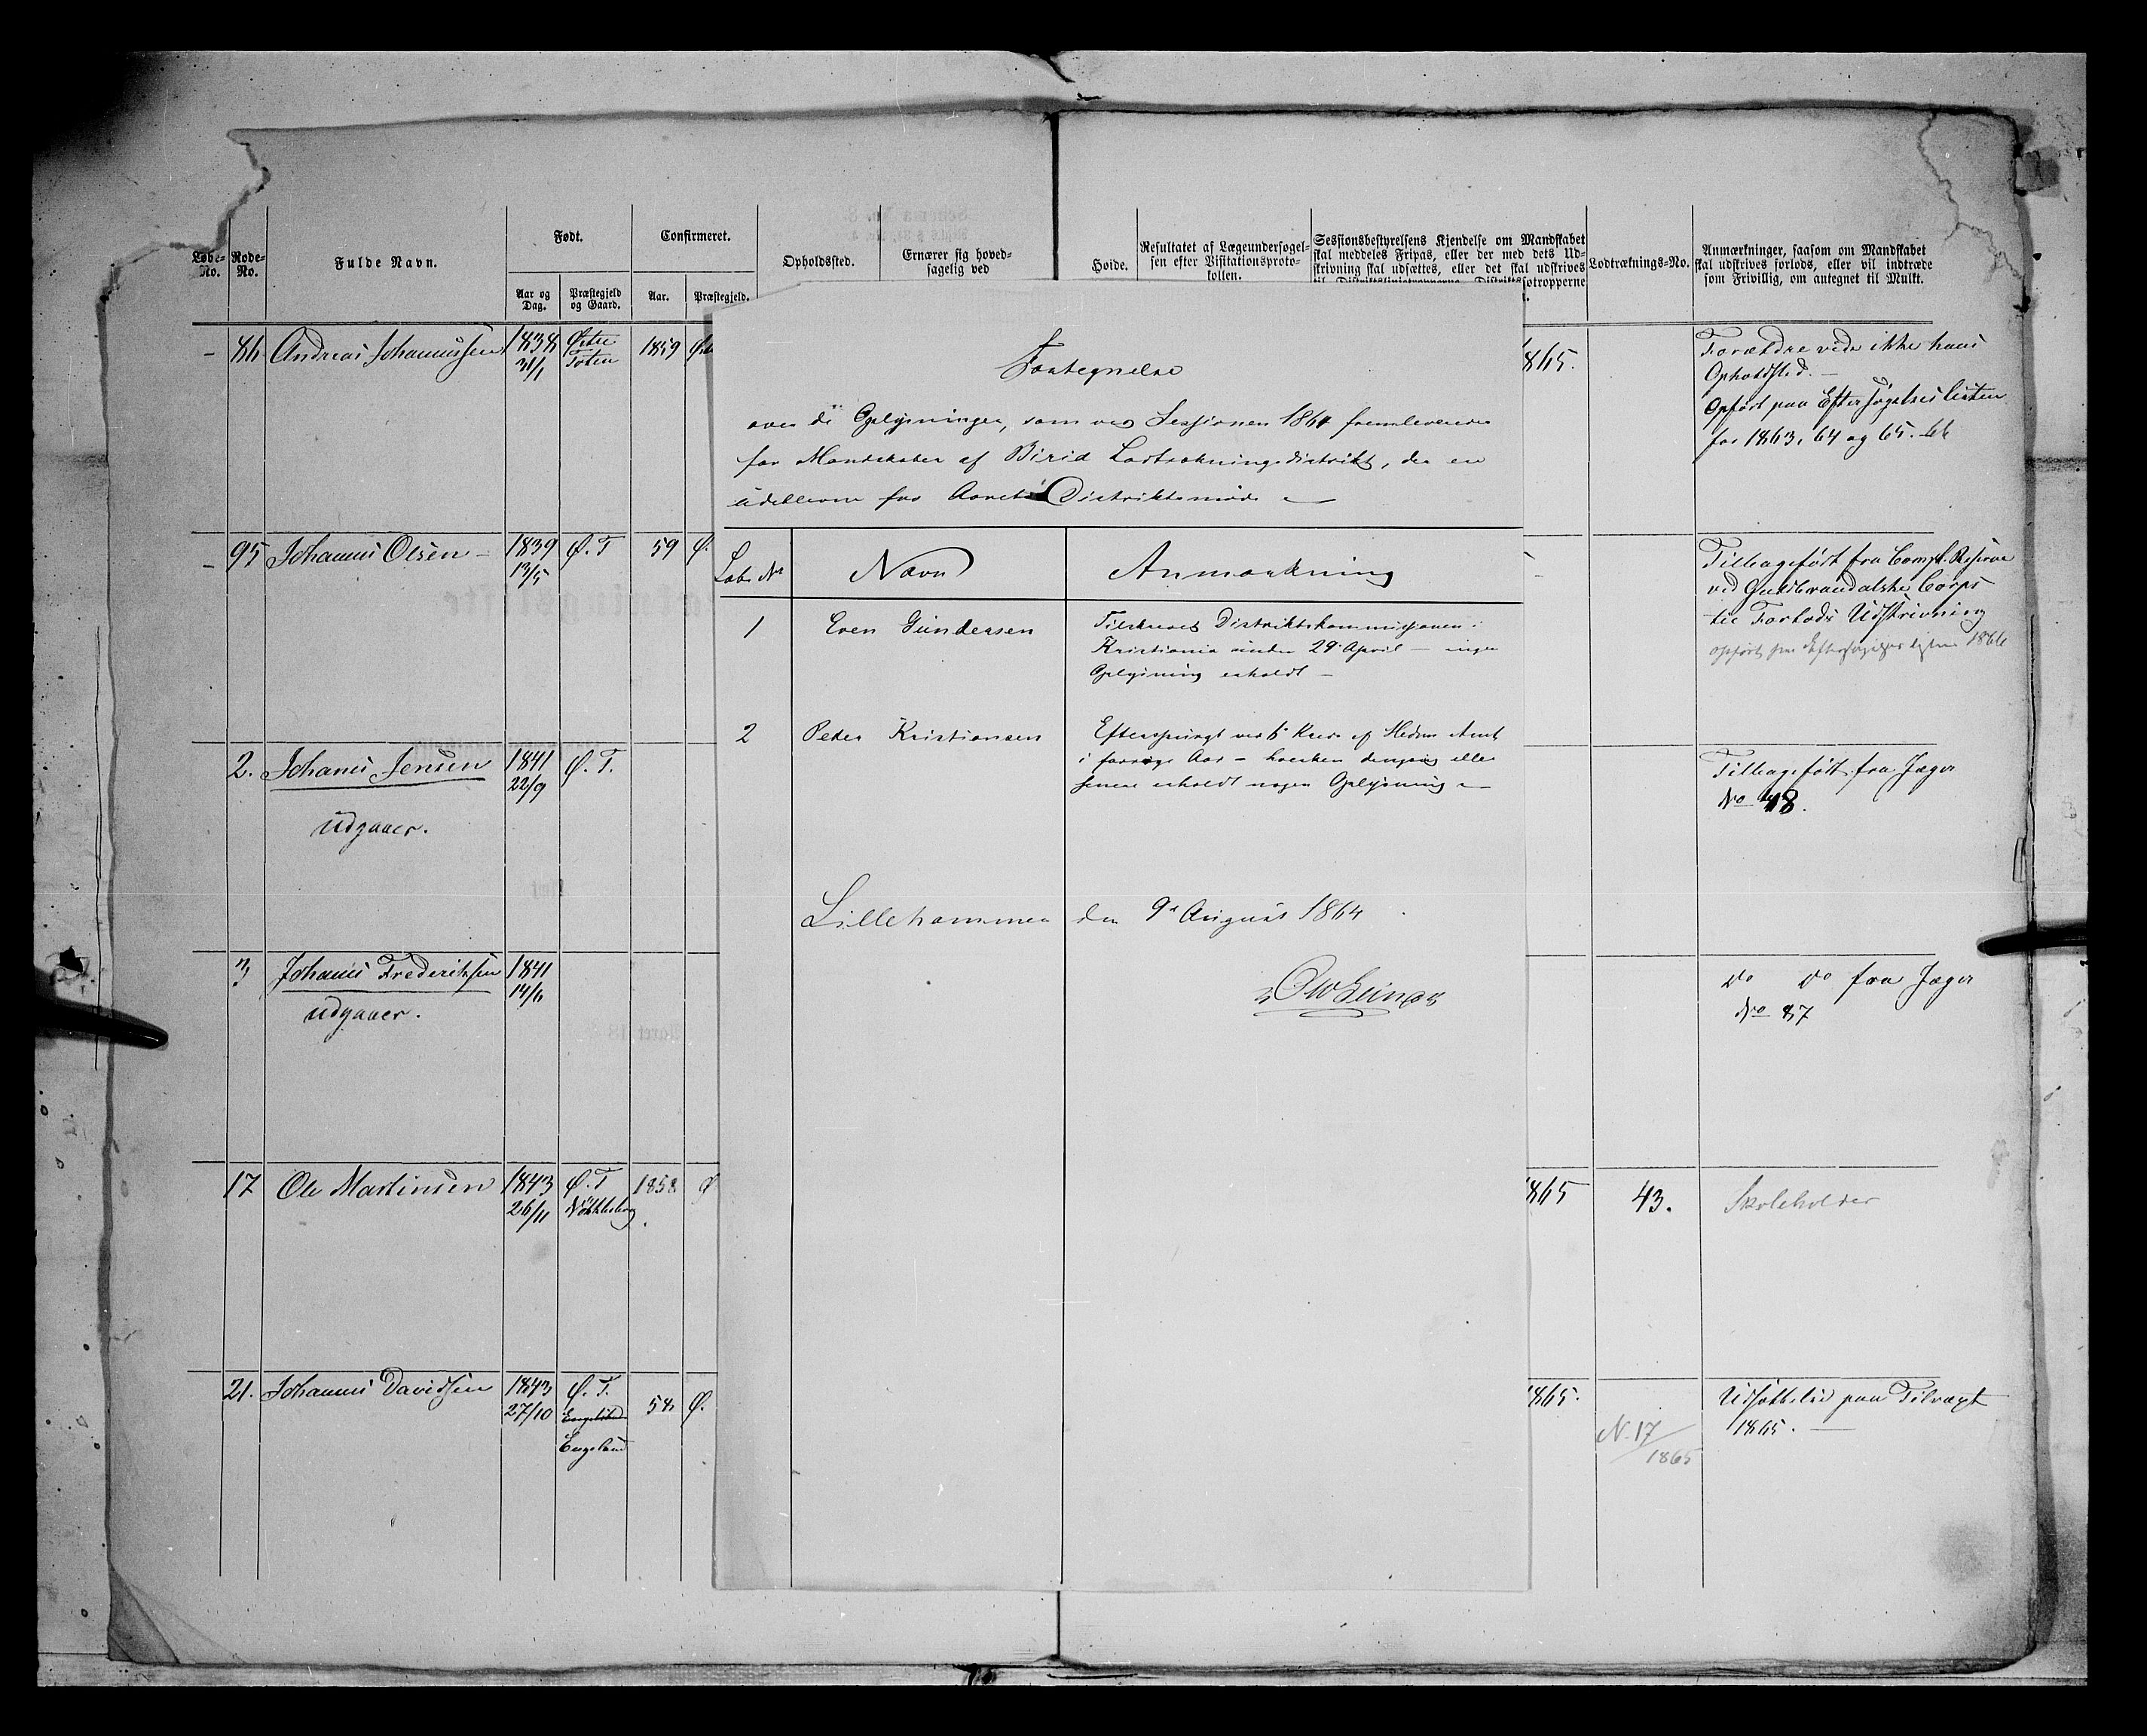 Løbe-No.
Rode-No.
Fulde Navn.
Født.
Aar og Dag.
Præstegjeld og Gaard.
Confirmeret.
Aar.
Præstegjeld.
Opholdssted.
Ernærer sig hoved-
sagelig ved
Høide.
Resultatet af Lægeundersøgel-
sen efter Visitationsproto-
kollen.
Sessionsbestyrelsens Kjendelse om Mandskabet
skal meddeles Fripas, eller der med dets Ud-
skrivning skal udsættes, eller det skal udskrives
Lodtræknings-No.
Anmærkninger, saasom om Mandskabet
skal udskrives forlods, eller vil indtræde
som Frivillig, om antegnet til Mulkt.
- 86 Andreas Johannessen 1838 31/1 Østre Toten 1859
865.
Forældre vide ikke hans
Opholdsted. -
Opført paa Eftersøgelses listen
for 1863, 64 og 65.
- 95 Johannes Olsen - 1839 13/5 Ø. T 59 Ø.
Tilbageført fra Compl. Reserve
ved Gudbrandalske Corps
til Forlods Udskrivning
opført paa Eftersøgelses listen 1866
2. Johanes Jensen 1841 22/9 Ø. T.
udgaaer.
Tilbageført fra Jæger
No 48.
3 Johanes Frederiksen 1841 14/6
udgaaer.
do do fra Jæger
No 87
17 Ole Martinsen 1843 26/11 Ø. T 1858 Ø
865 43. Skoleholder
21. Johannes Davidsen 1843 27/10 Ø. T. Engeland 58 Ø.
865. N. 17/1865
Udsættelse paa Tilvæxt
1865. -
Fortegnelse
over de Oplysninger, som ved Sessionen 1864 fremleveredes
for Mandskaber af Birid Lodtrækningsdistrikt, der ere
udeblevne fra Aarets Distriktsmøde -
Løbe No Navn Anmærkning
1 Even Gundersen Tilskrevet Distriktskommissionen i
Kristiania under 29 April - ingen
Oplysning erholdt -
2 Peder Kristiansen Efterspurgt ved 6 Kreds af Hedem. Amt
i forrige Aar - hverken dengang eller
senere erholdt nogen Oplysning -
Lillehammer den 9de August 1864